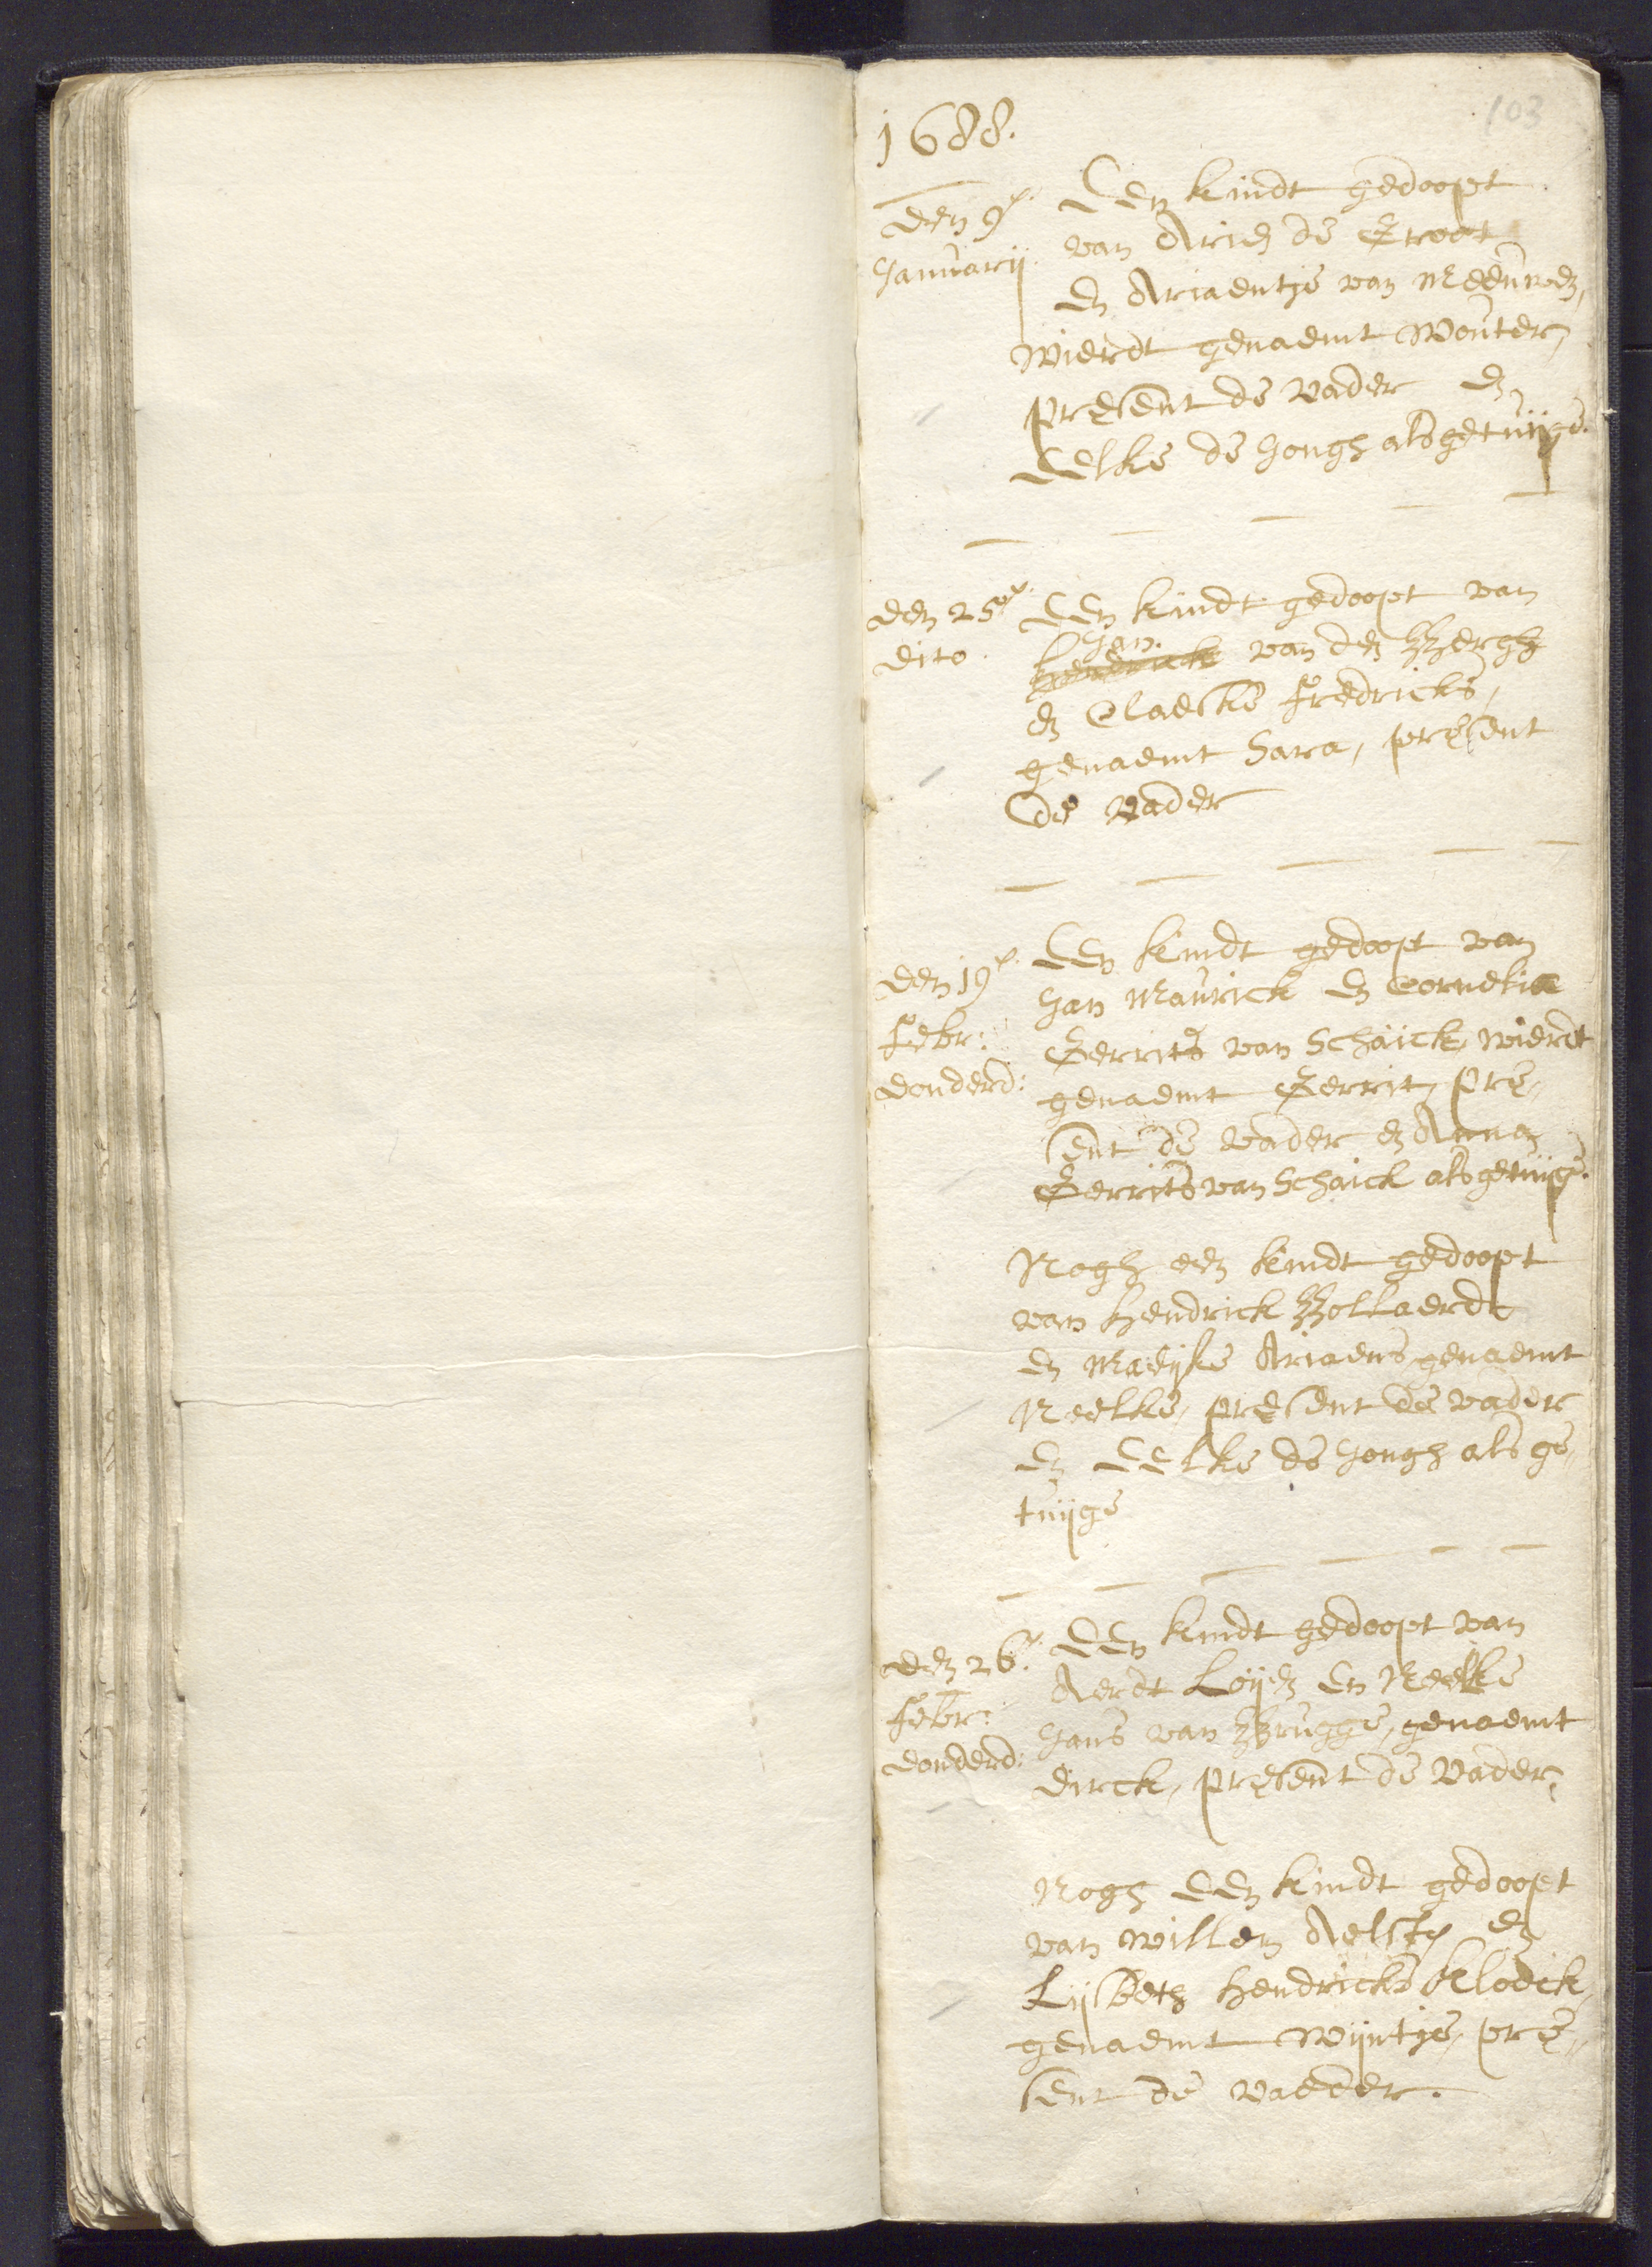 103
1688.
den 9e.
Januarij.
Een kindt gedoopt
van Arien de Groot
En Ariaentje van Meeuwen,
wierdt genaemt Wouter,
present de vader En
Eelke de Jongh als getuijge.
den 25e.
dito.
Een kindt gedoopt van
Jan.
Hendrick van den Bergh
En Claeske fredricks,
genaemt Sara, present
de vader
den 19e.
febr:
donderd:
Een kindt gedoopt van
Jan Maurick En Cornelia
Gerrits van Schaick, wierdt
genaemt Gerrit, pre„
sent de vader En Anna
Gerrits van Schaick als getuijge.
Nogh een kindt gedoopt
van Hendrick Bollaerdt
En Maeijke Ariaens, genaemt
Neelke, present de vader
En Eelke de Jongh als ge„
tuijge
den 26e.
febr:
donderd:
Een kindt gedoopt van
Aerdt Loijen En Neelke
Jans van Brugge, genaemt
dirck, present de vader,
Nogh Een kindt gedoopt
van Willem Aelsten En
Lijsbeth Hendricks Kloeck,
genaemt Wijntje, pre„
sent de vaeder.